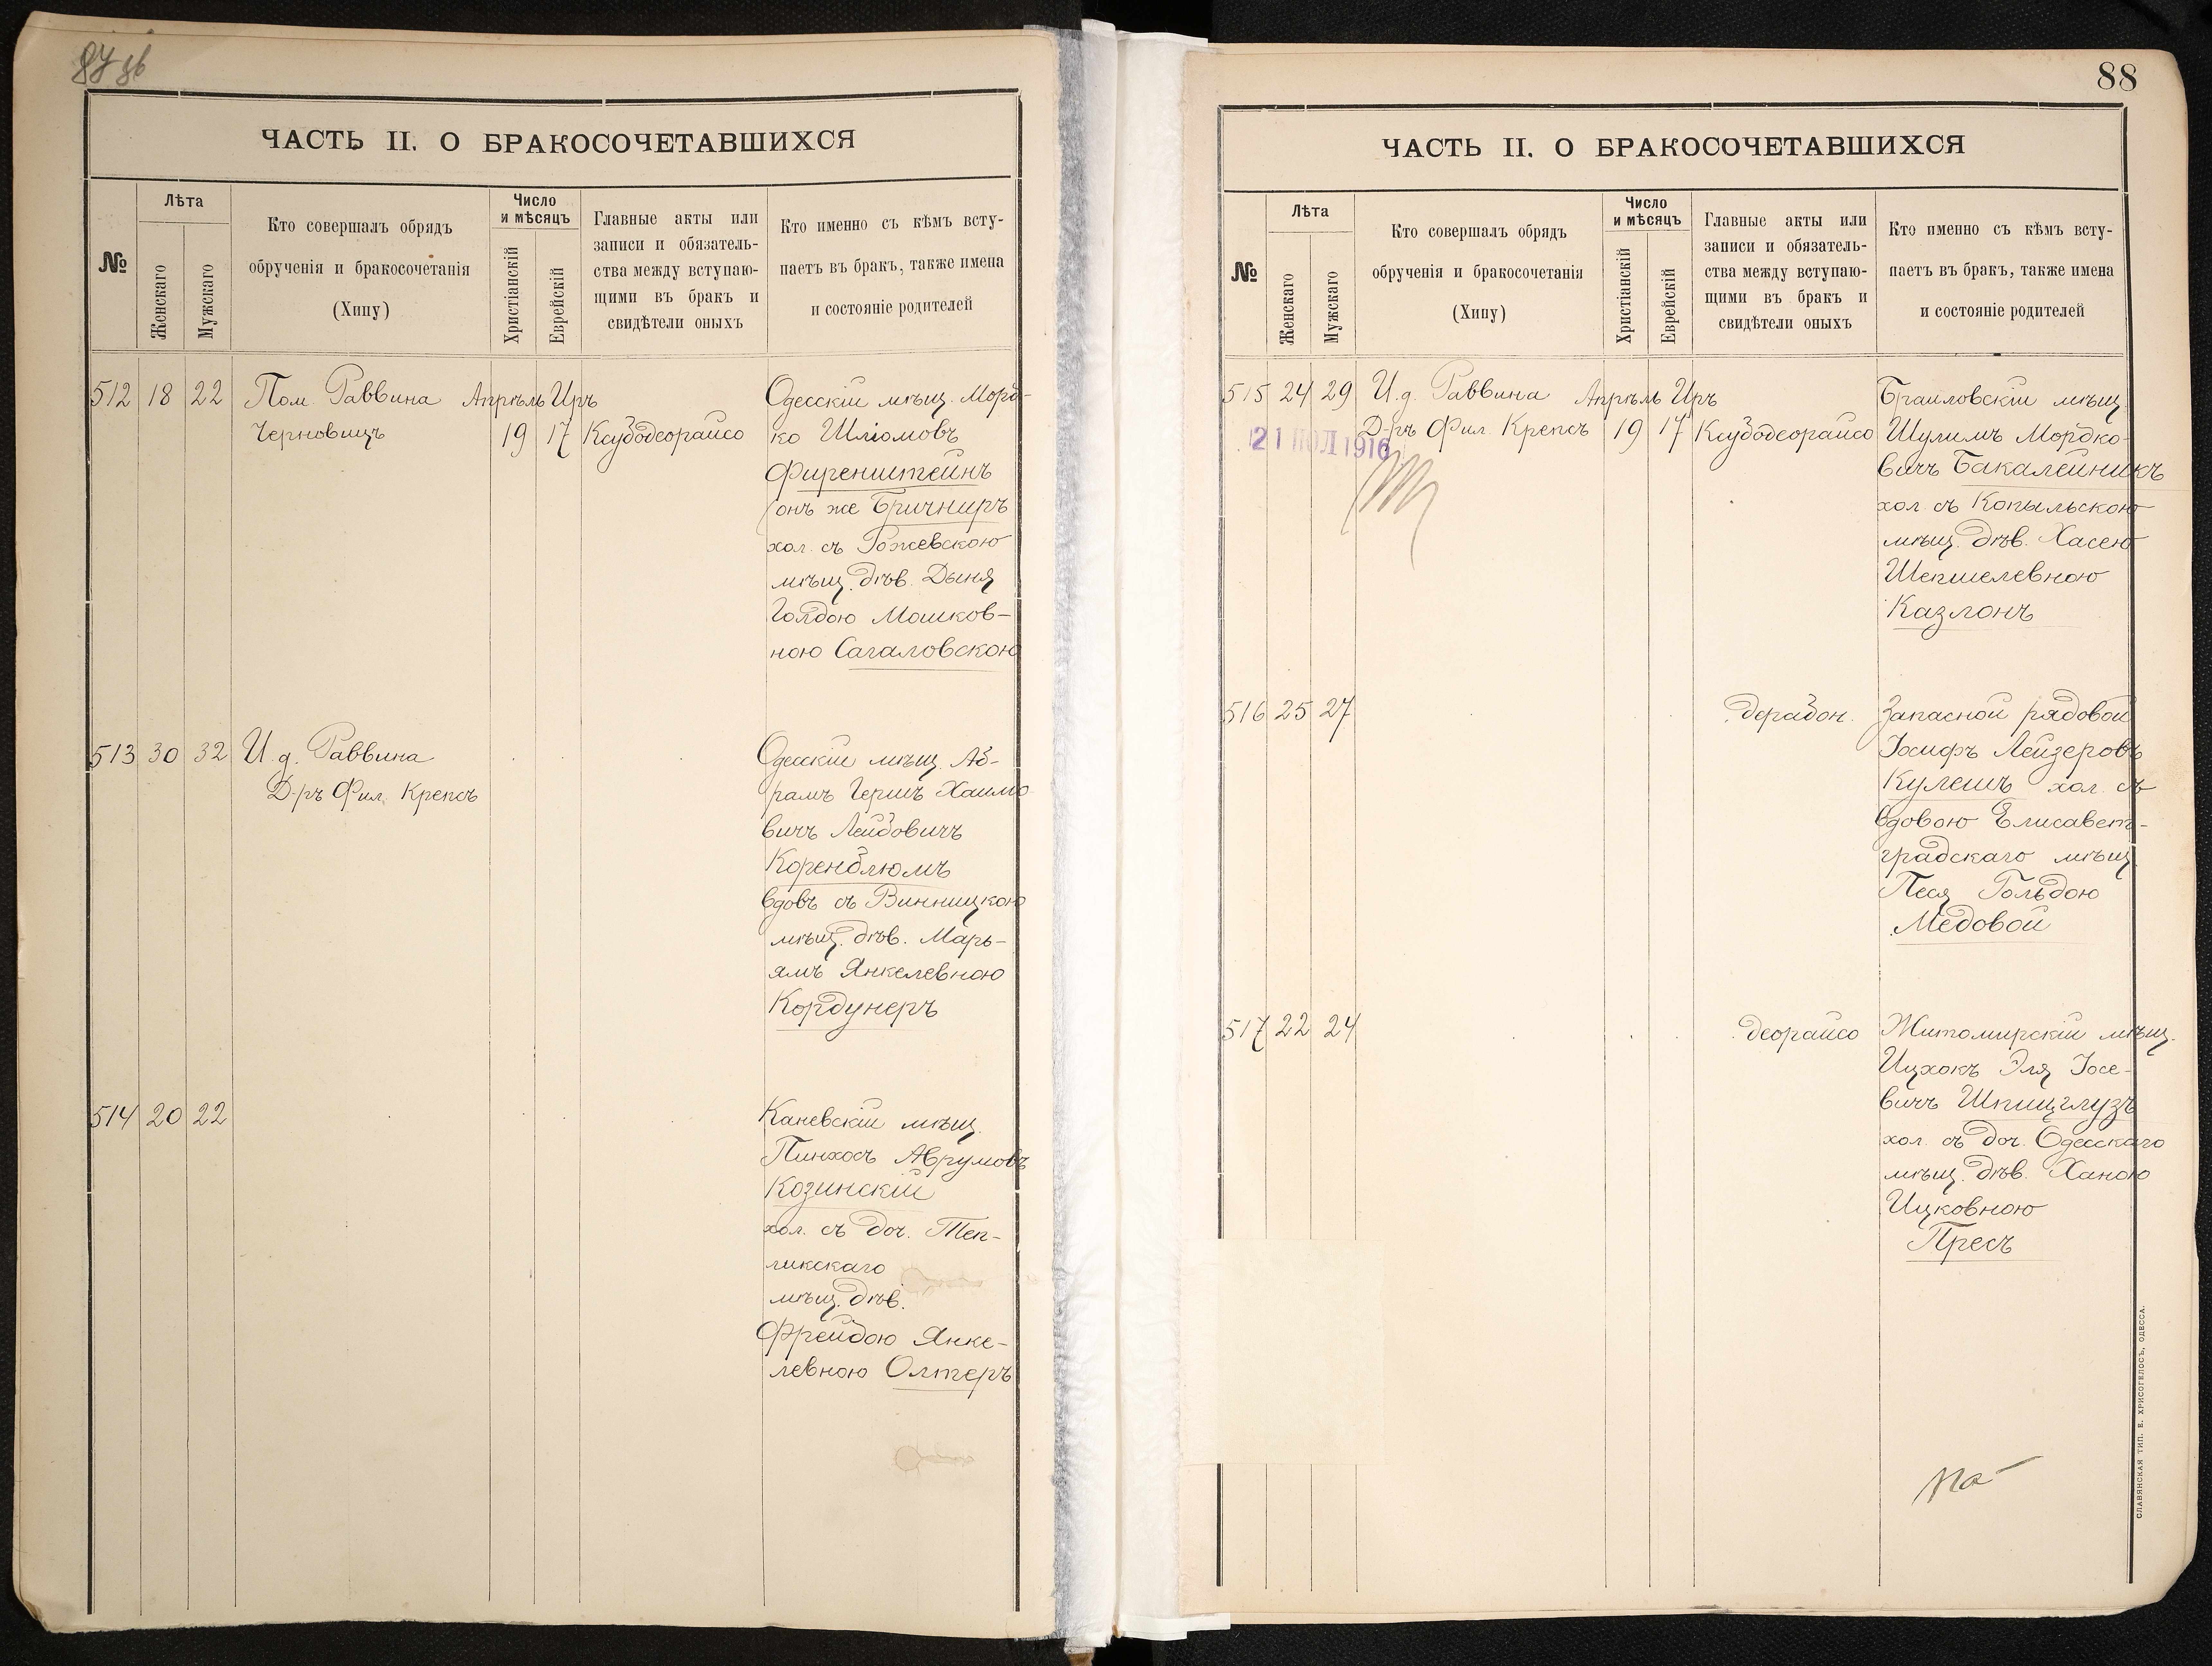 ЧАСТЬ II. О БРАКОСОЧЕТАВШИХСЯ
№
Лѣта
Женскаго
Мужскаго
Кто совершалъ обрядъ
обрученія и бракосочетанія
(Хипу)
Число
и мѣсяцъ
Христіанскій
Еврейскій
Главные акты или
записи и обязатель-
ства между вступаю-
щими въ бракъ и
свидѣтели оныхъ
Кто именно съ кѣмъ всту-
паетъ въ бракъ, также имена
и состояніе родителей
512 18 22 Пом. Раввина Апрѣль Иръ
Черновицъ 19 17 Ксубодеорайсо
Одесскій мѣщ. Морд-
ко Шліомовъ
Фиренштейнъ
онъ же Бричниръ
хол. съ Рожевскою
мѣщ. дѣв. Дыня
Голдою Мошков-
ною Сагаловскою
513 30 32 И. д. Раввина
Д-ръ Фил. Крепсъ
Одесскій мѣщ. Аб-
рамъ Гершъ Хаимо
вичъ Лейбовичъ
Коренблюмъ
вдовъ съ Винницкою
мѣщ. дѣв. Марь-
ямъ Янкелевною
Кордунеръ
514 20 22
Каневскій мѣщ.
Пинхосъ Аврумовъ
Козинскій
хол. съ доч. Теп-
ликскаго
мѣщ. дѣв.
Фрейдою Янке-
левною Олтеръ
88
ЧАСТЬ II. О БРАКОСОЧЕТАВШИХСЯ
№
Лѣта
Женскаго
Мужскаго
Кто совершалъ обрядъ
обрученія и бракосочетанія
(Хипу)
Число
и мѣсяцъ
Христіанскій
Еврейскій
Главные акты или
записи и обязатель-
ства между вступаю-
щими въ бракъ и
свидѣтели оныхъ
Кто именно съ кѣмъ всту-
паетъ въ бракъ, также имена
и состояніе родителей
515 24 29 И. д. Раввина Апрѣль Иръ
Д-ръ Фил. Крепсъ 19 17 Ксубодеорайсо
21 ІЮЛ 1916
Браиловскій мѣщ.
Шулимъ Мордко-
вичъ Бакалейникъ
хол съ Копыльскою
мѣщ. дѣв. Хасею
Шепшелевною
Казлонъ
516 25 27 дерабон.
Запасной рядовой
Іосифъ Лейзеровъ
Кулешъ хол. съ
вдовою Елисавет-
градскаго мѣщ.
Песя Гольдою
Медовой
517 22 24 деорайсо
Житомирскій мѣщ.
Ицхокъ Эля Іосе-
вичъ Шпицглузъ
хол. съ доч. Одесскаго
мѣщ. дѣв. Ханою
Ицковною
Пресъ
СЛАВЯНСКАЯ ТИП. Е. ХРИСОГЕЛОСЪ, ОДЕССА.